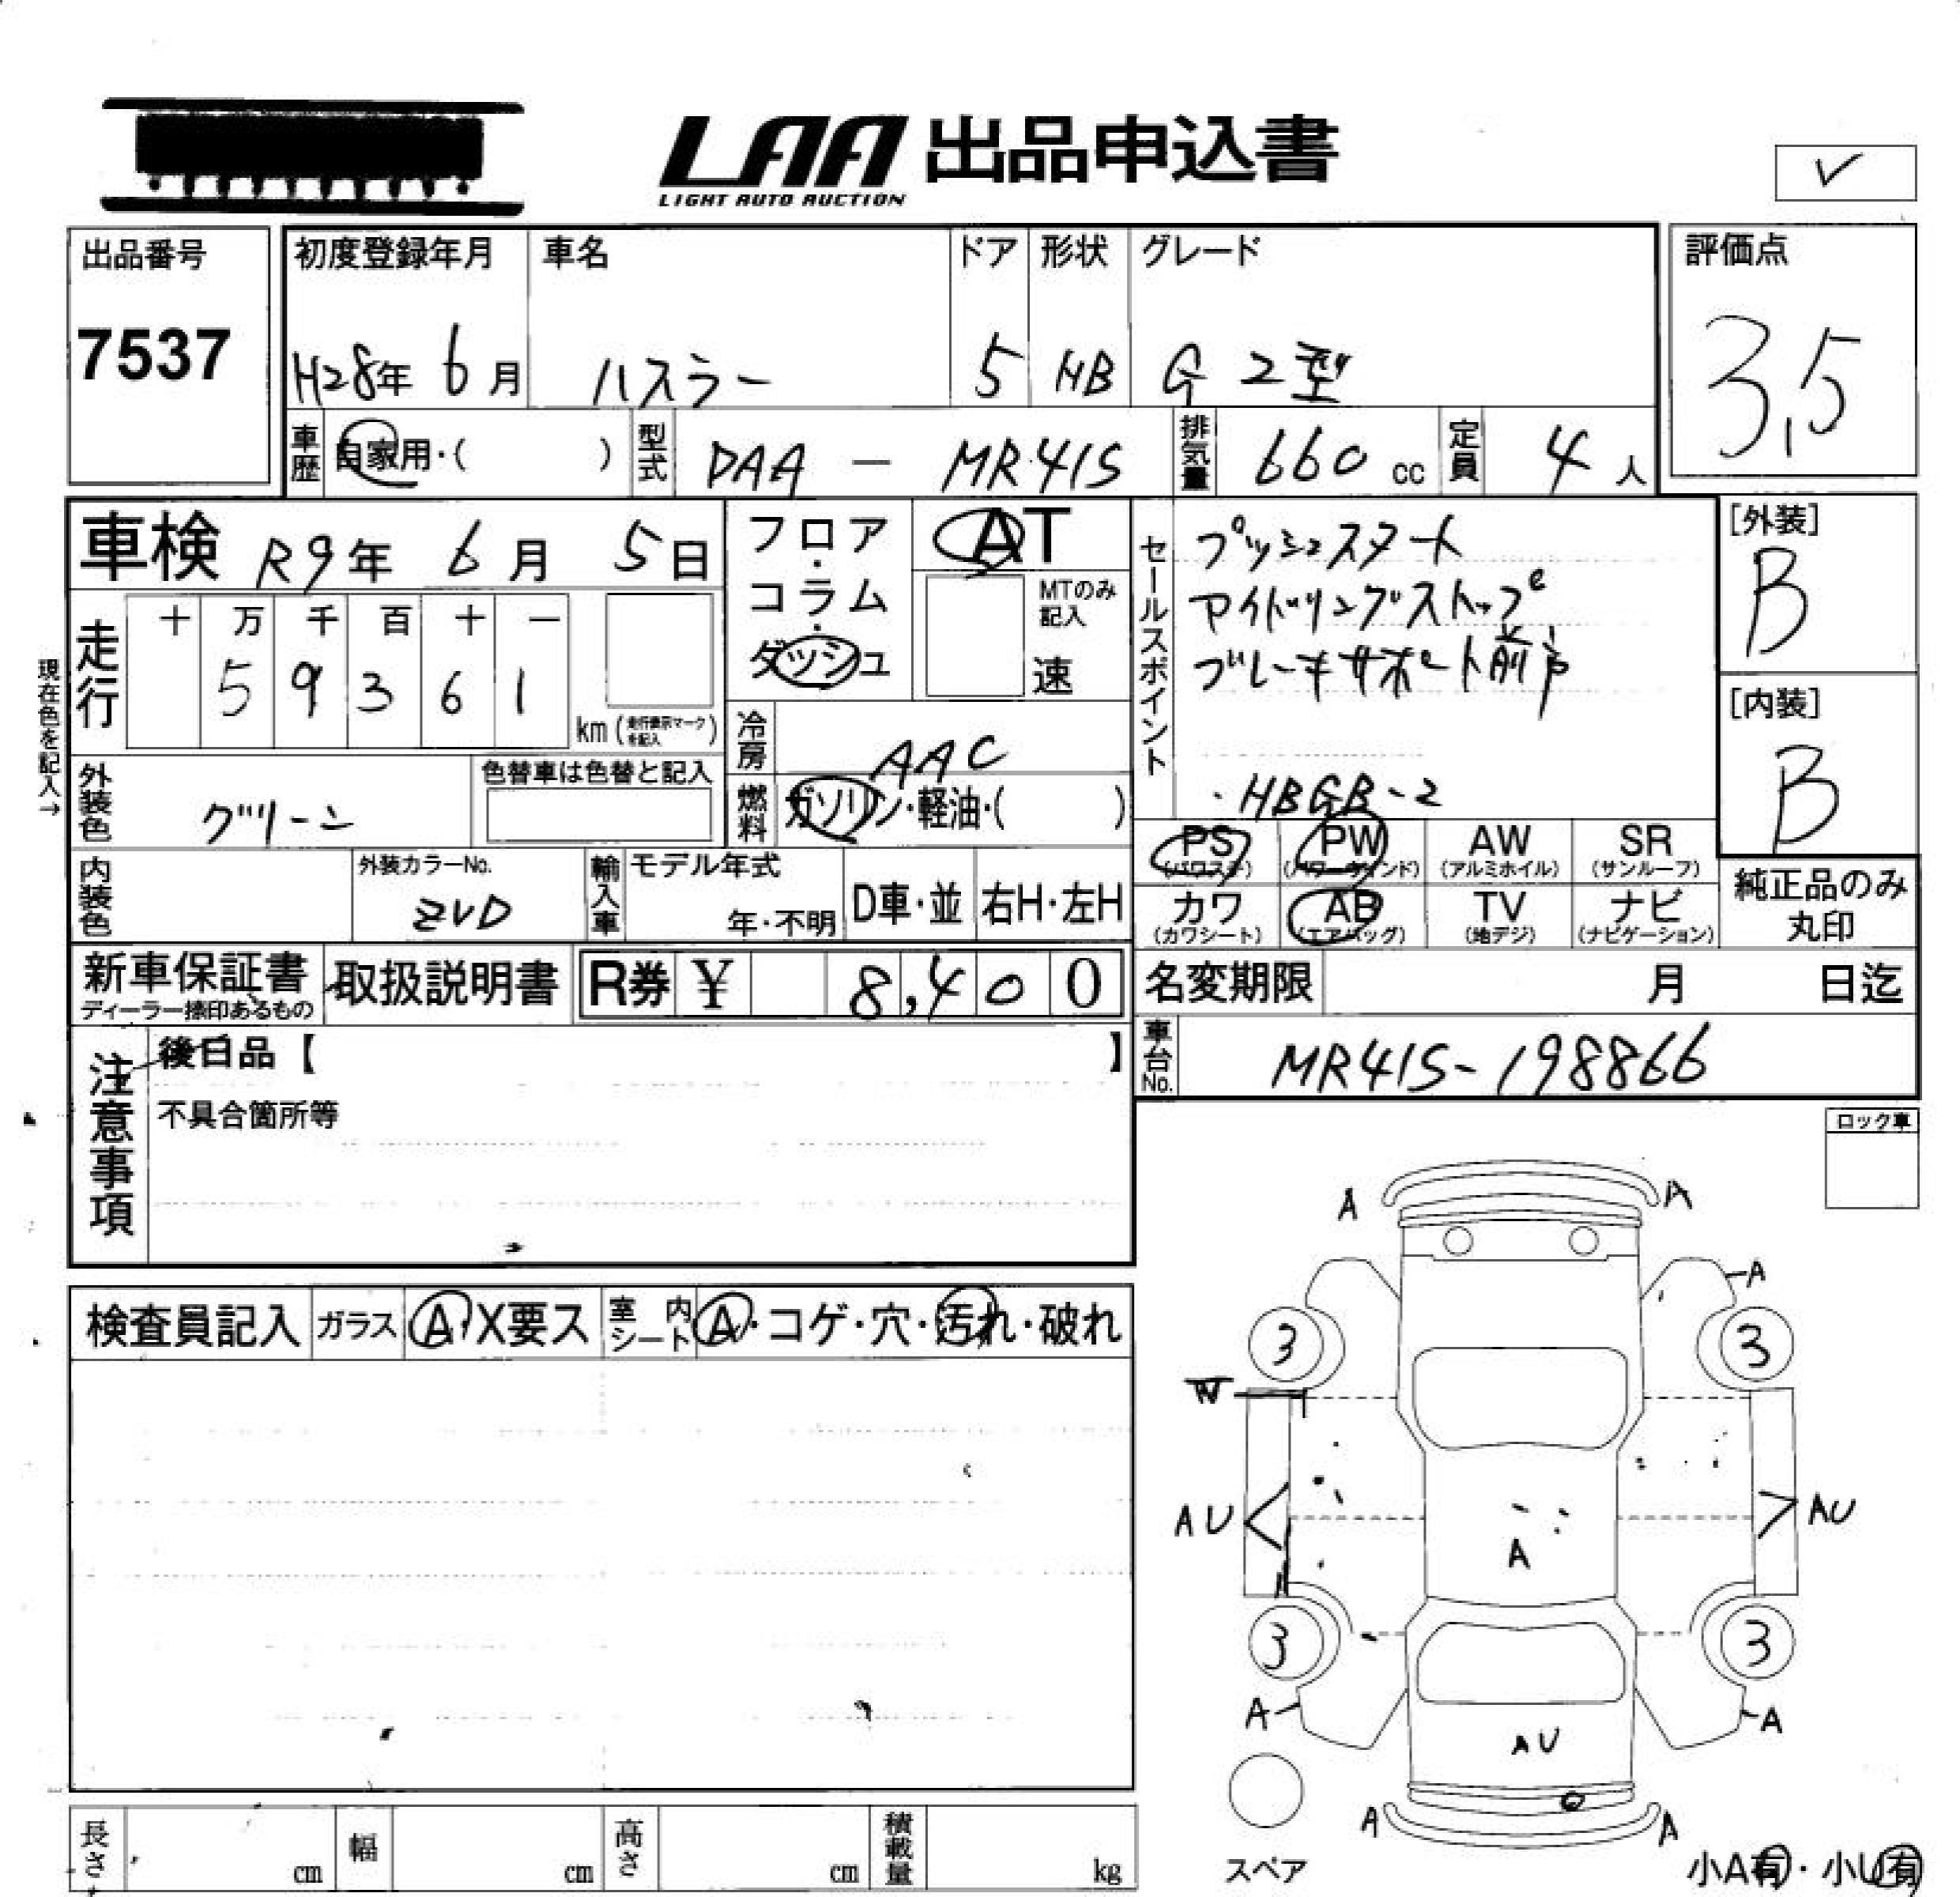 LAA 出品申込書
LIGHT AUTO AUCTION
✓
出品番号
7537
初度登録年月
H28年 6月
車名
ハスラー
ドア
5
形状
HB
グレード
G 2型
評価点
3.5
車歴
自家用・( )
型式
DAA - MR41S
排気量
660 cc
定員
4 人
車検 R9年 6月 5日
フロア・コラム・ダッシュ
AT
MTのみ記入
速
セールスポイント
プッシュスタート
アイドリングストップ
ブレーキサポート前
・HBGB-2
[外装]
B
[内装]
B
現在色を記入→
走行
十 万 千 百 十 一
5 9 3 6 1
km (走行表示マークを記入)
冷房
AAC
外装色
グリーン
色替車は色替と記入
燃料
ガソリン・軽油・( )
PS (パワステ)
PW (パワーウインド)
AW (アルミホイル)
SR (サンルーフ)
カワ (カワシート)
AB (エアバッグ)
TV (地デジ)
ナビ (ナビゲーション)
純正品のみ丸印
内装色
外装カラーNo.
ZVD
輸入車
モデル年式
年・不明
D車・並
右H・左H
新車保証書
ディーラー捺印あるもの
取扱説明書
R券 ¥ 8,400
名変期限 月 日迄
車台No.
MR41S-198866
注意事項
後日品【 】
不具合箇所等
ロック車
検査員記入
ガラス
A・X要ス
室内シート
A・コゲ・穴・汚れ・破れ
A A
A
3 3
W
AU AU
A
3 3
A A
AU
A A
スペア
小A有・小U有
長さ cm
幅 cm
高さ cm
積載量 kg